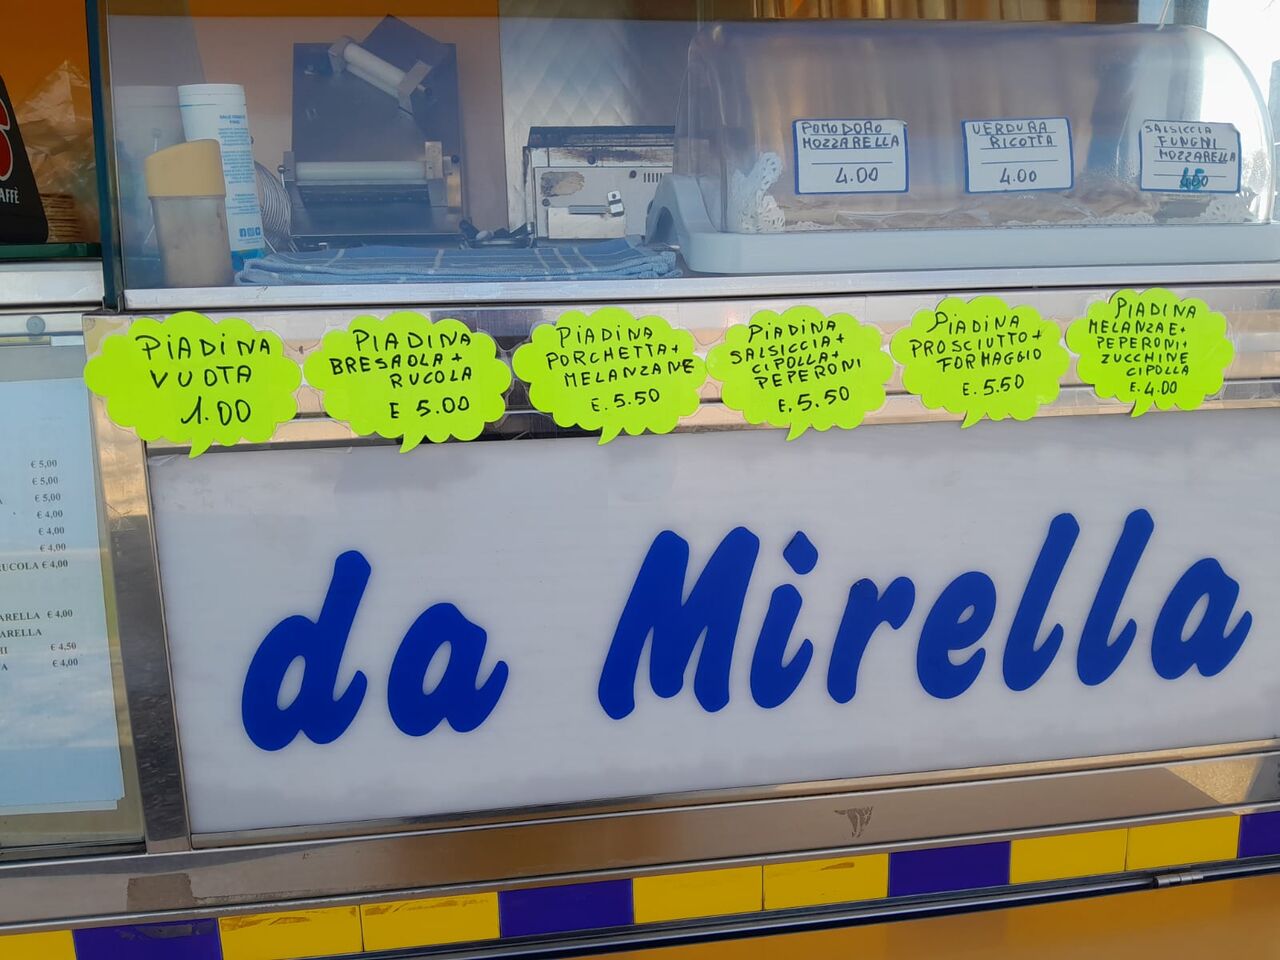 CAFFÈ
POMODORO
MOZZARELLA
4.00
VERDURA
RICOTTA
4.00
SALSICCIA
FUNGHI
MOZZARELLA
4.50
PIADINA
VUOTA
1.00
PIADINA
BRESAOLA+
RUCOLA
E 5.00
PIADINA
PORCHETTA+
MELANZANE
E. 5.50
PIADINA
SALSICCIA+
CIPOLLA+
PEPERONI
E. 5.50
PIADINA
PROSCIUTTO+
FORMAGGIO
E. 5.50
PIADINA
MELANZAE+
PEPERONI+
ZUCCHINE
CIPOLLA
E. 4.00
€ 5,00
€ 5,00
€ 5,00
€ 4,00
€ 4,00
€ 4,00
RUCOLA € 4,00
ARELLA € 4,00
ARELLA
HI € 4,50
A € 4,00
da Mirella